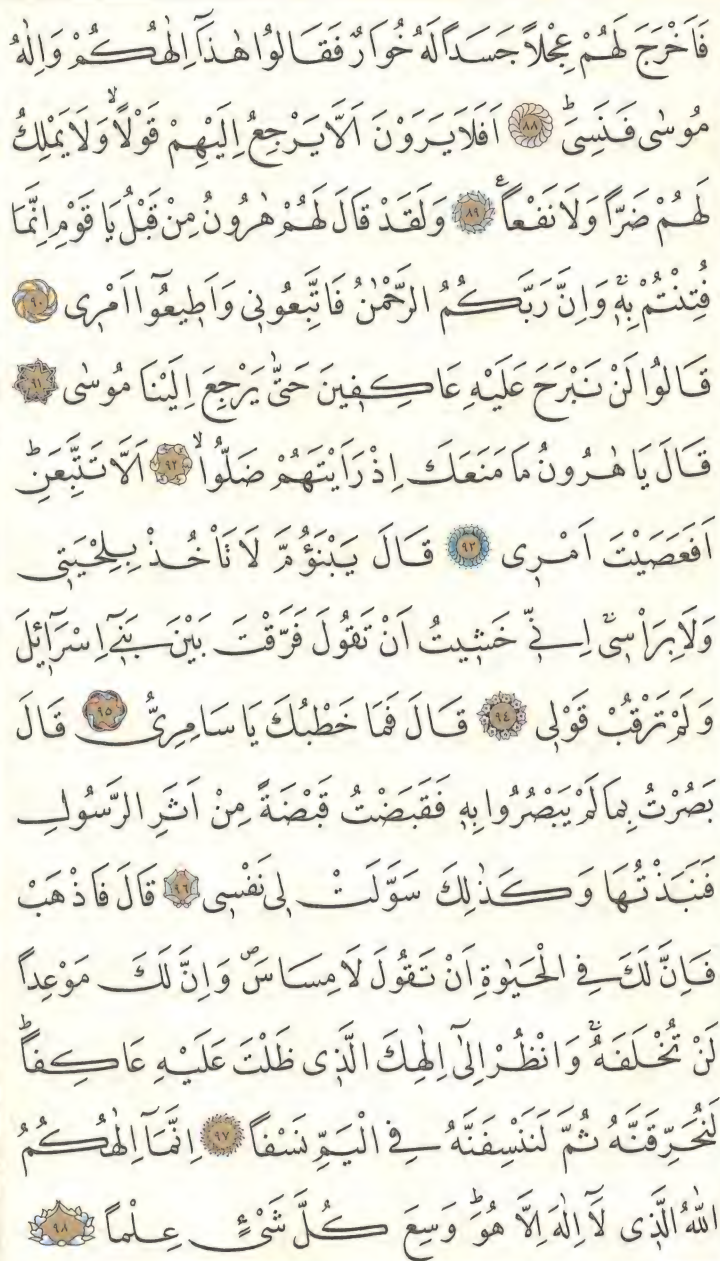 فَاَخْرَجَ لَهُمْ عِجْلاً جَسَداً لَهُ خُوَارٌ فَقَالُوا هٰذَٓا اِلٰهُكُمْ وَاِلٰهُ
مُوسٰى فَنَسِىَۜ ﴿٨٨﴾ اَفَلَا يَرَوْنَ اَلَّا يَرْجِعُ اِلَيْهِمْ قَوْلاًۙ وَلَا يَمْلِكُ
لَهُمْ ضَرّاً وَلَا نَفْعاًۚ ﴿٨٩﴾ وَلَقَدْ قَالَ لَهُمْ هٰرُونُ مِنْ قَبْلُ يَا قَوْمِ اِنَّمَا
فُتِنْتُمْ بِهٖۚ وَاِنَّ رَبَّكُمُ الرَّحْمٰنُ فَاتَّبِعُونٖى وَاَطٖيعُٓوا اَمْرٖى ﴿٩٠﴾
قَالُوا لَنْ نَبْرَحَ عَلَيْهِ عَاكِفٖينَ حَتّٰى يَرْجِعَ اِلَيْنَا مُوسٰى ﴿٩١﴾
قَالَ يَا هٰرُونُ مَا مَنَعَكَ اِذْ رَاَيْتَهُمْ ضَلُّواۙ ﴿٩٢﴾ اَلَّا تَتَّبِعَنِۜ
اَفَعَصَيْتَ اَمْرٖى ﴿٩٣﴾ قَالَ يَبْنَؤُمَّ لَا تَاْخُذْ بِلِحْيَتٖى
وَلَا بِرَاْسٖىۚ اِنّٖى خَشٖيتُ اَنْ تَقُولَ فَرَّقْتَ بَيْنَ بَنٖٓى اِسْرَٓائٖلَ
وَلَمْ تَرْقُبْ قَوْلٖى ﴿٩٤﴾ قَالَ فَمَا خَطْبُكَ يَا سَامِرِىُّ ﴿٩٥﴾ قَالَ
بَصُرْتُ بِمَا لَمْ يَبْصُرُوا بِهٖ فَقَبَضْتُ قَبْضَةً مِنْ اَثَرِ الرَّسُولِ
فَنَبَذْتُهَا وَكَذٰلِكَ سَوَّلَتْ لٖى نَفْسٖى ﴿٩٦﴾ قَالَ فَاذْهَبْ
فَاِنَّ لَكَ فِى الْحَيٰوةِ اَنْ تَقُولَ لَا مِسَاسَۖ وَاِنَّ لَكَ مَوْعِداً
لَنْ تُخْلَفَهُۚ وَانْظُرْ اِلٰٓى اِلٰهِكَ الَّذٖى ظَلْتَ عَلَيْهِ عَاكِفاًۜ
لَنُحَرِّقَنَّهُ ثُمَّ لَنَنْسِفَنَّهُ فِى الْيَمِّ نَسْفاً ﴿٩٧﴾ اِنَّمَٓا اِلٰهُكُمُ
اللّٰهُ الَّذٖى لَٓا اِلٰهَ اِلَّا هُوَۜ وَسِعَ كُلَّ شَىْءٍ عِلْماً ﴿٩٨﴾